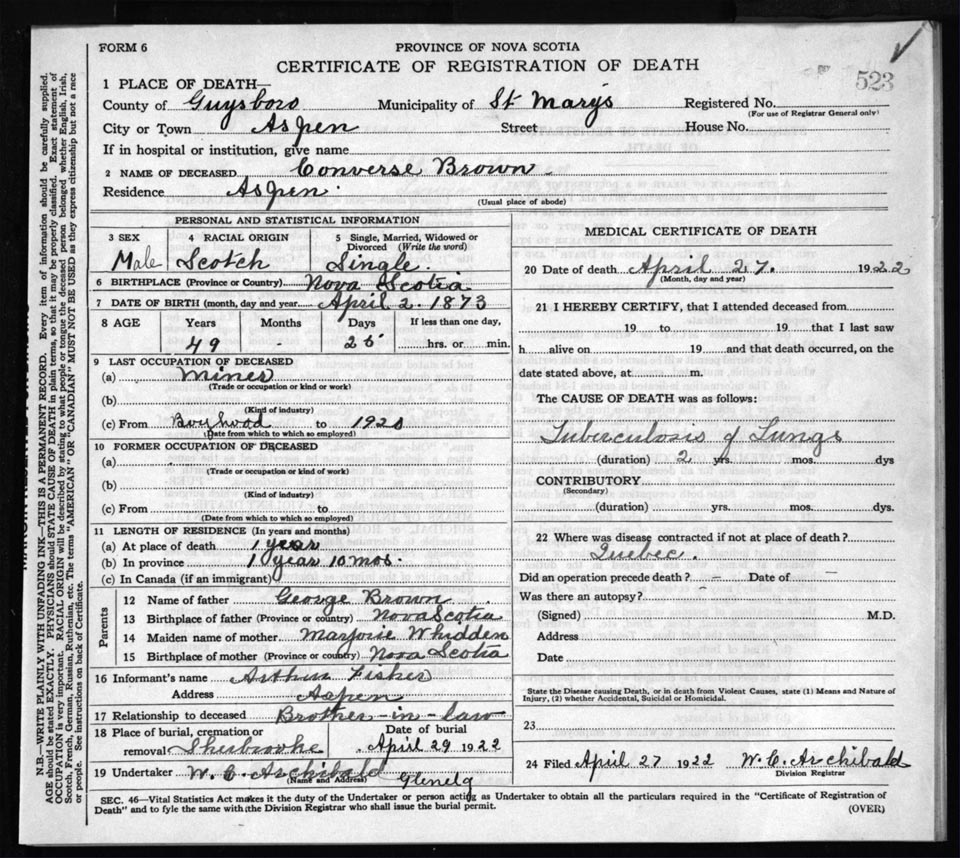 FORM 6
PROVINCE OF NOVA SCOTIA
CERTIFICATE OF REGISTRATION OF DEATH
523
1 PLACE OF DEATH—
County of Guysboro Municipality of St Mary's Registered No.
(For use of Registrar General only)
City or Town Aspen Street House No.
If in hospital or institution, give name
2 NAME OF DECEASED Converse Brown
Residence Aspen
(Usual place of abode)
PERSONAL AND STATISTICAL INFORMATION
3 SEX 4 RACIAL ORIGIN 5 Single, Married, Widowed or Divorced (Write the word)
Male Scotch Single
6 BIRTHPLACE (Province or Country) Nova Scotia
7 DATE OF BIRTH (month, day and year) April 2. 1873
8 AGE Years Months Days If less than one day,
49 - 25 hrs. or min.
9 LAST OCCUPATION OF DECEASED
(a) Miner
(Trade or occupation or kind or work)
(b)
(Kind of industry)
(c) From Boyhood to 1920
(Date from which to which so employed)
10 FORMER OCCUPATION OF DECEASED
(a)
(Trade or occupation or kind of work)
(b)
(Kind of industry)
(c) From to
(Date from which to which so employed)
11 LENGTH OF RESIDENCE (In years and months)
(a) At place of death 1 year
(b) In province 1 year 10 mos.
(c) In Canada (if an immigrant)
Parents
12 Name of father George Brown
13 Birthplace of father (Province or country) Nova Scotia
14 Maiden name of mother Marjorie Whidden
15 Birthplace of mother (Province or country) Nova Scotia
16 Informant's name Arthur Fisher
Address Aspen
17 Relationship to deceased Brother-in-law
18 Place of burial, cremation or Date of burial
removal Sherbrooke April 29 1922
19 Undertaker W. C. Archibald Glenelg
(Name and Address)
MEDICAL CERTIFICATE OF DEATH
20 Date of death April 27. 1922
(Month, day and year)
21 I HEREBY CERTIFY, that I attended deceased from
19 to 19 that I last saw
h alive on 19 and that death occurred, on the
date stated above, at m.
The CAUSE OF DEATH was as follows:
Tuberculosis of Lungs
(duration) 2 yrs. mos. dys
CONTRIBUTORY
(Secondary)
(duration) yrs. mos. dys.
22 Where was disease contracted if not at place of death?
Quebec.
Did an operation precede death? – Date of –
Was there an autopsy?
(Signed) M.D.
Address
Date
State the Disease causing Death, or in death from Violent Causes, state (1) Means and Nature of
Injury, (2) whether Accidental, Suicidal or Homicidal.
23
24 Filed April 27 1922 W. C. Archibald
Division Registrar
SEC. 46—Vital Statistics Act makes it the duty of the Undertaker or person acting as Undertaker to obtain all the particulars required in the "Certificate of Registration of
Death" and to fyle the same with the Division Registrar who shall issue the burial permit. (OVER)
N.B.—WRITE PLAINLY WITH UNFADING INK—THIS IS A PERMANENT RECORD. Every item of information should be carefully supplied.
AGE should be stated EXACTLY. PHYSICIANS should STATE CAUSE OF DEATH in plain terms, so that it may be properly classified. Exact statement of
OCCUPATION is very important. RACIAL ORIGIN will be described by stating to what people or tongue the deceased person belonged whether English, Irish,
Scotch, French, German, Russian, Ruthenian, etc. The terms "AMERICAN" OR "CANADIAN" MUST NOT BE USED as they express citizenship but not a race
or people. See instructions on back of Certificate.